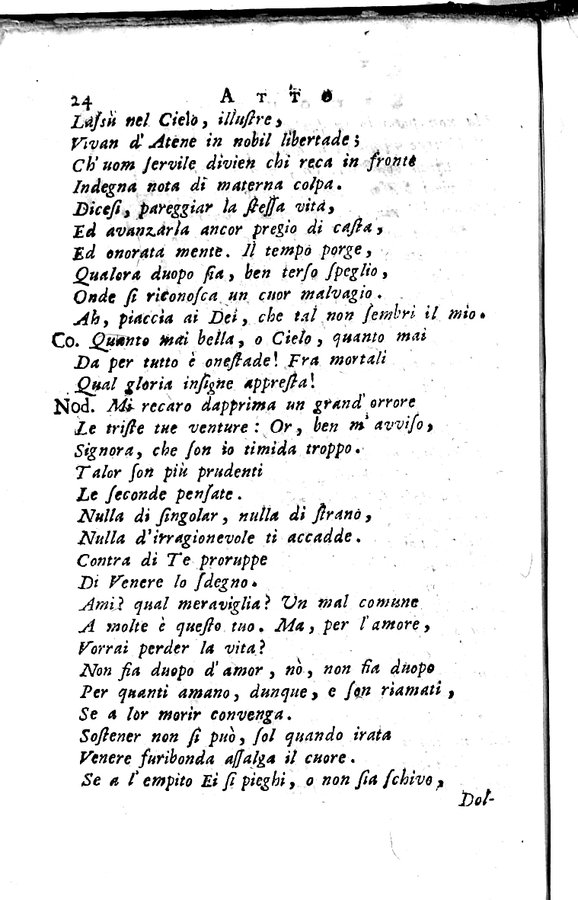 24 ATTO
Laſsù nel Cielo, illuſtre,
Vivan d' Atene in nobil libertade;
Ch' uom ſervile divien chi reca in fronte
Indegna nota di materna colpa.
Diceſi, pareggiar la ſteſſa vita,
Ed avanzarla ancor pregio di caſta,
Ed onorata mente. Il tempo porge,
Qualora duopo ſia, ben terſo ſpeglio,
Onde ſi riconoſca un cuor malvagio.
Ah, piaccia ai Dei, che tal non ſembri il mio.
Co. Quanto mai bella, o Cielo, quanto mai
Da per tutto è oneſtade! Fra mortali
Qual gloria inſigne appreſta!
Nod. Mi recaro dapprima un grand' orrore
Le triſte tue venture: Or, ben m' avviſo,
Signora, che ſon io timida troppo.
Talor ſon più prudenti
Le ſeconde penſate.
Nulla di ſingolar, nulla di ſtrano,
Nulla d'irragionevole ti accadde.
Contra di Te proruppe
Di Venere lo ſdegno.
Ami? qual meraviglia? Un mal comune
A molte è queſto tuo. Ma, per l'amore,
Vorrai perder la vita?
Non fia duopo d'amor, nò, non fia duopo
Per quanti amano, dunque, e ſon riamati,
Se a lor morir convenga.
Soſtener non ſi può, ſol quando irata
Venere furibonda aſſalga il cuore.
Se a l'empito Ei ſi pieghi, o non ſia ſchivo,
Dol-